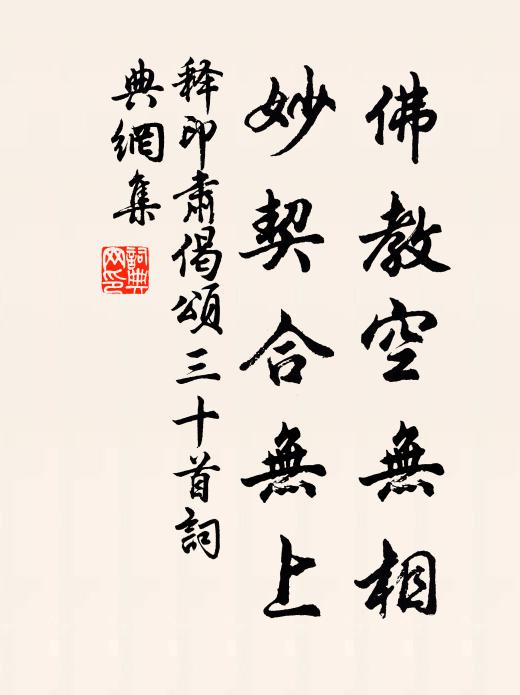 佛教空無相
妙契合無上
释印肅偈頌三十首詞
典網集
詞典
网印